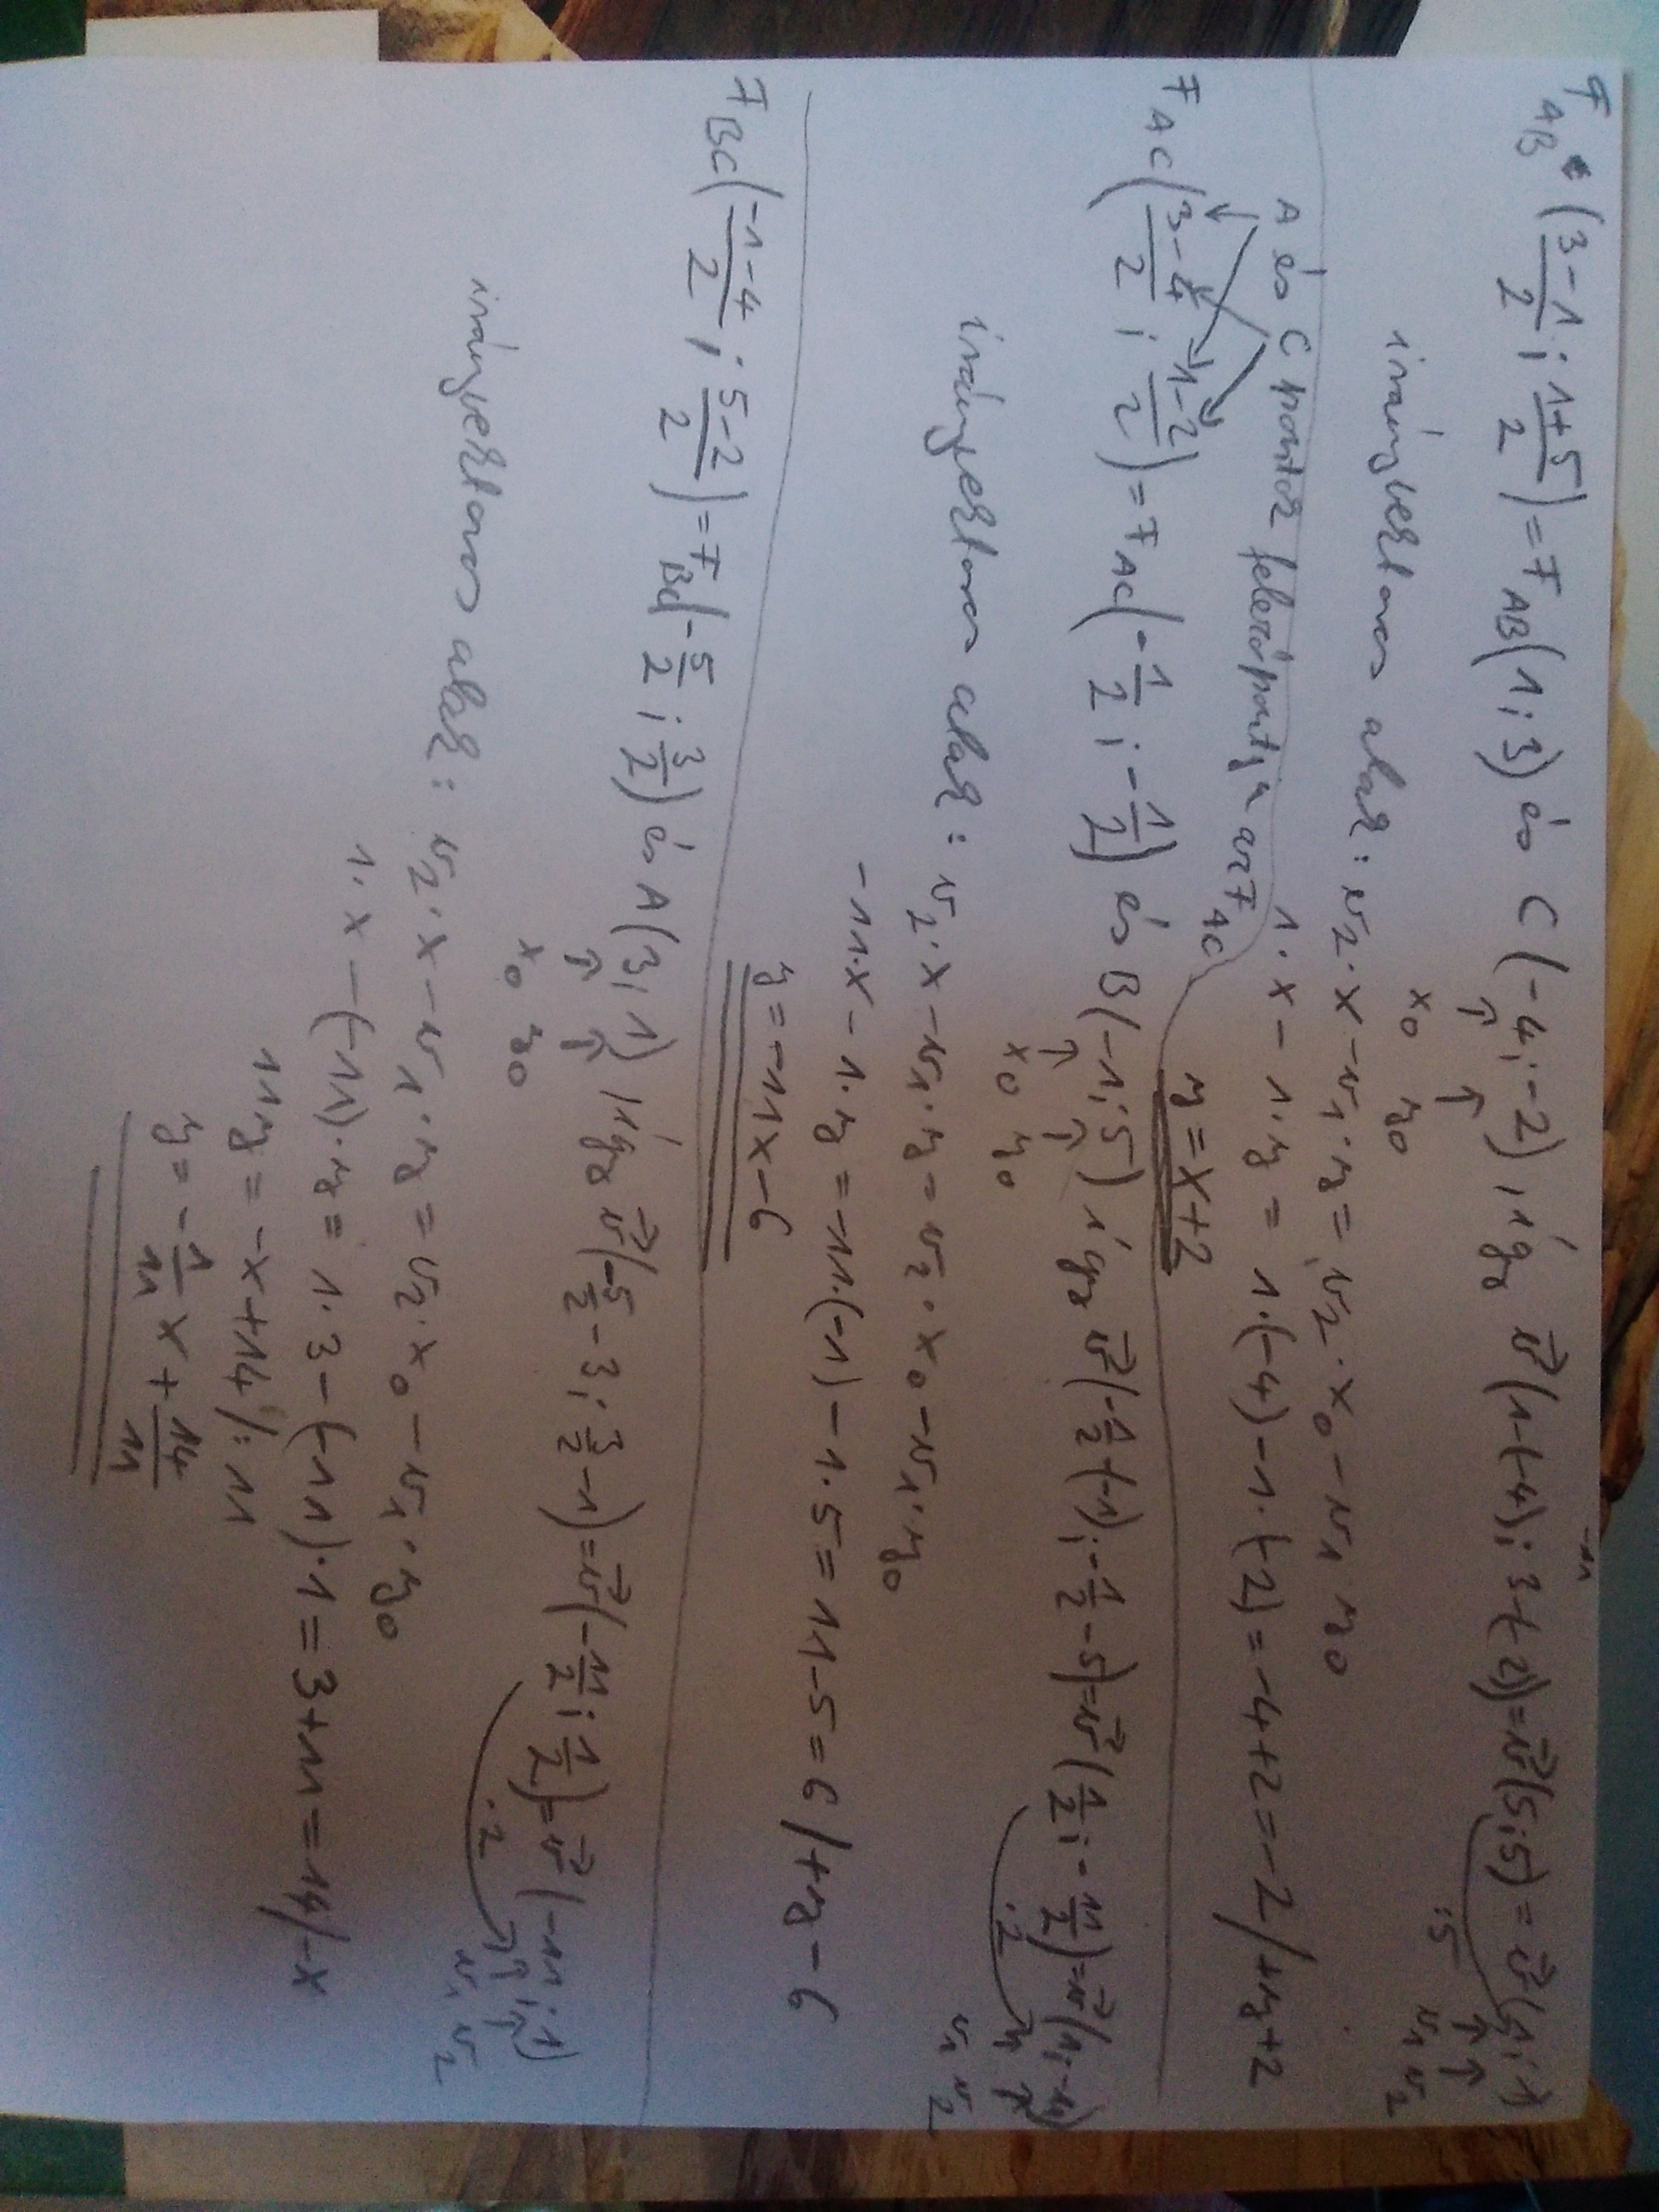 F_AB (3-1/2 ; 1+5/2) = F_AB(1;3) és C(-4;-2), így v⃗(1-(-4); 3-(-2)) = v⃗(5;5) = v⃗(1;1)
↑ ↑ :5 ↑ ↑
x₀ y₀ v₁ v₂
irányvektoros alak: v₂·x-v₁·y = v₂·x₀-v₁·y₀
1·x-1·y = 1·(-4)-1·(-2) = -4+2 = -2 /+y+2
y = x+2
A és C pontok felezőpontja az F_AC
F_AC(3-4/2 ; 1-2/2) = F_AC(-1/2 ; -1/2) és B(-1;5) így v⃗(-1/2-(-1); -1/2-5) = v⃗(1/2 ; -11/2) = v⃗(1;-11)
↑ ↑ ·2 ↑ ↑
x₀ y₀ v₁ v₂
irányvektoros alak: v₂·x-v₁·y = v₂·x₀-v₁·y₀
-11·x-1·y = -11·(-1)-1·5 = 11-5 = 6 /+y-6
y = -11x-6
F_BC(-1-4/2 ; 5-2/2) = F_BC(-5/2 ; 3/2) és A(3;1) így v⃗(-5/2-3; 3/2-1) = v⃗(-11/2 ; 1/2) = v⃗(-11;1)
↑ ↑ ·2 ↑ ↑
x₀ y₀ v₁ v₂
irányvektoros alak: v₂·x-v₁·y = v₂·x₀-v₁·y₀
1·x-(-11)·y = 1·3-(-11)·1 = 3+11 = 14 /-x
11y = -x+14 /:11
y = -1/11 x + 14/11